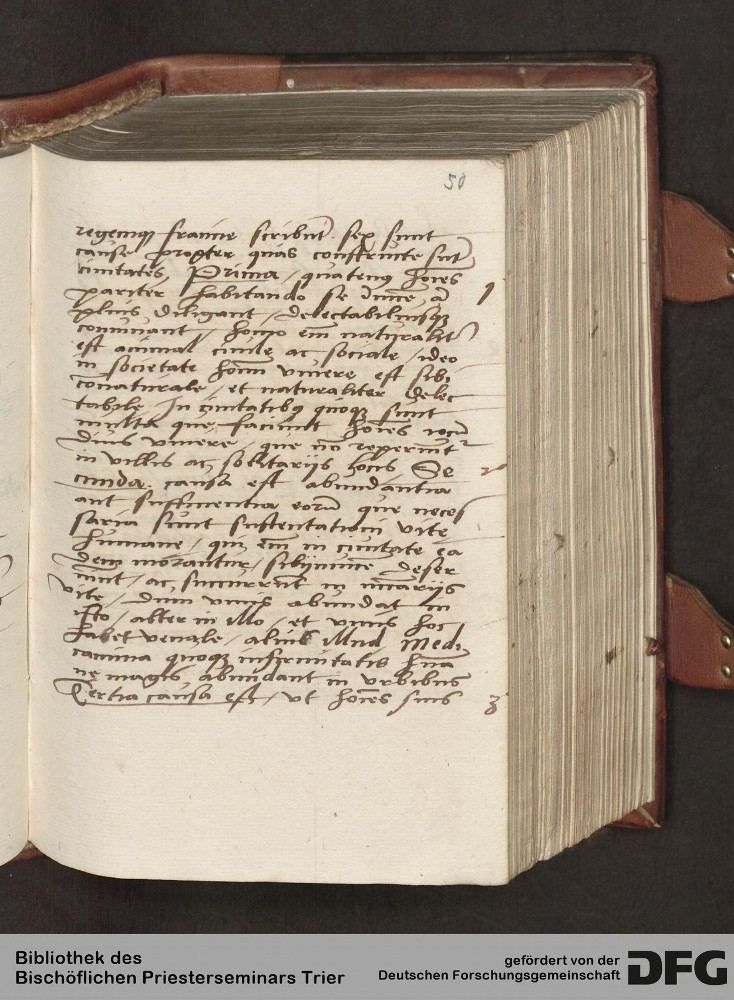 50
regemque francie scribunt. sex sunt
cause propter quas constructe sunt
ciuitates, Prima, quatenus hoīes
pariter habitando se inuicē
plus diligant, delectabiliusque
conuiuant, homo em̄ naturalit
1
est animal ciuile ac sociale, ideo
in societate hom̄ viuere est sibi
conaturale, et naturaliter delec
tabile In ciuitatibꝫ quoque sunt
multa que faciunt hoīes iocū
dius viuere, que nō reperiunt
in villis ac solitarijs locis Se
2
cunda. causa est abundantia
aut sufficientia eorū que neces
saria sunt sustentationi vite
humane, qui em̄ in ciuitate ea
dem morantur, sibijnuicē deser
uiūt, ac succurrūt in nccārijs
vite, dum vnus abundat in
isto, alter in illo, et vnus hoc
habet venale, alius illud Medi
camina quoque infirmitatis hūa
ne magis abundant in vrbibus
Tertia causa est, vt hoīes suis
3
Bibliothek des
Bischöflichen Priesterseminars Trier
gefördert von der
Deutschen Forschungsgemeinschaft
DFG